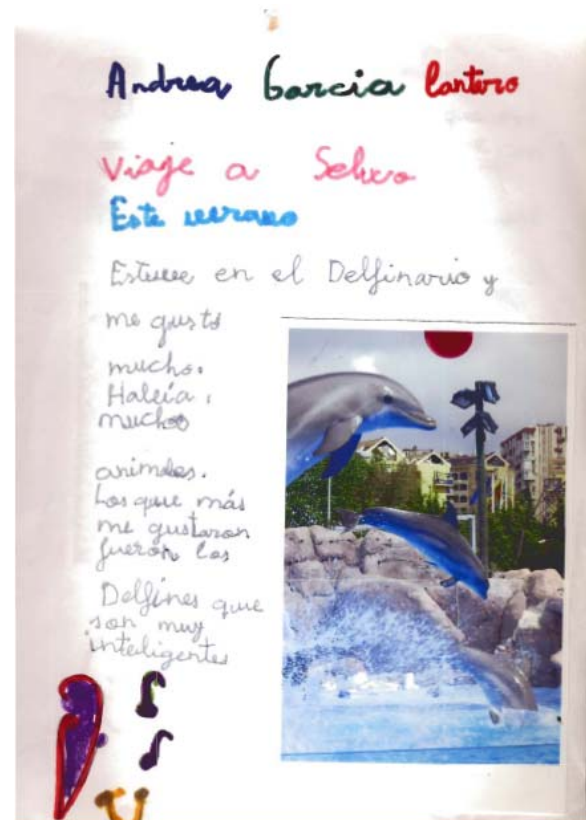 Andrea Garcia Cantero
Viaje a Selwo
Este verano
Estuve en el Delfinario y
me gustó
mucho.
Había
muchos
animales.
Los que más
me gustaron
fueron los
Delfines que
son muy
inteligentes